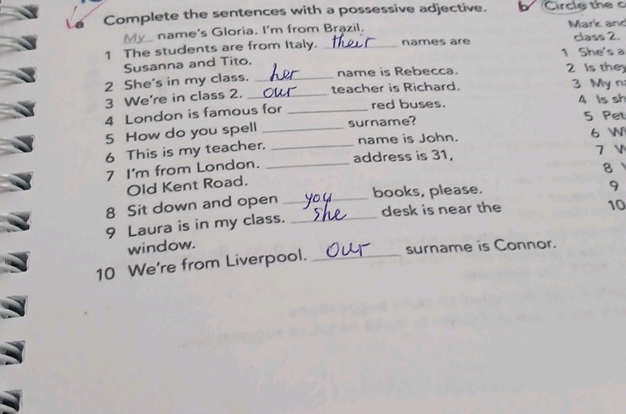 a Complete the sentences with a possessive adjective.
My name's Gloria. I'm from Brazil.
1 The students are from Italy. their names are
Susanna and Tito.
2 She's in my class. her name is Rebecca.
3 We're in class 2. our teacher is Richard.
4 London is famous for ________ red buses.
5 How do you spell ________ surname?
6 This is my teacher. ________ name is John.
7 I'm from London. ________ address is 31,
Old Kent Road.
8 Sit down and open you books, please.
9 Laura is in my class. she desk is near the
window.
10 We're from Liverpool. our surname is Connor.
b Circle the
Mark and
class 2.
1 She's a
2 Is they
3 My
4 Is
5
6
7
8
9
10